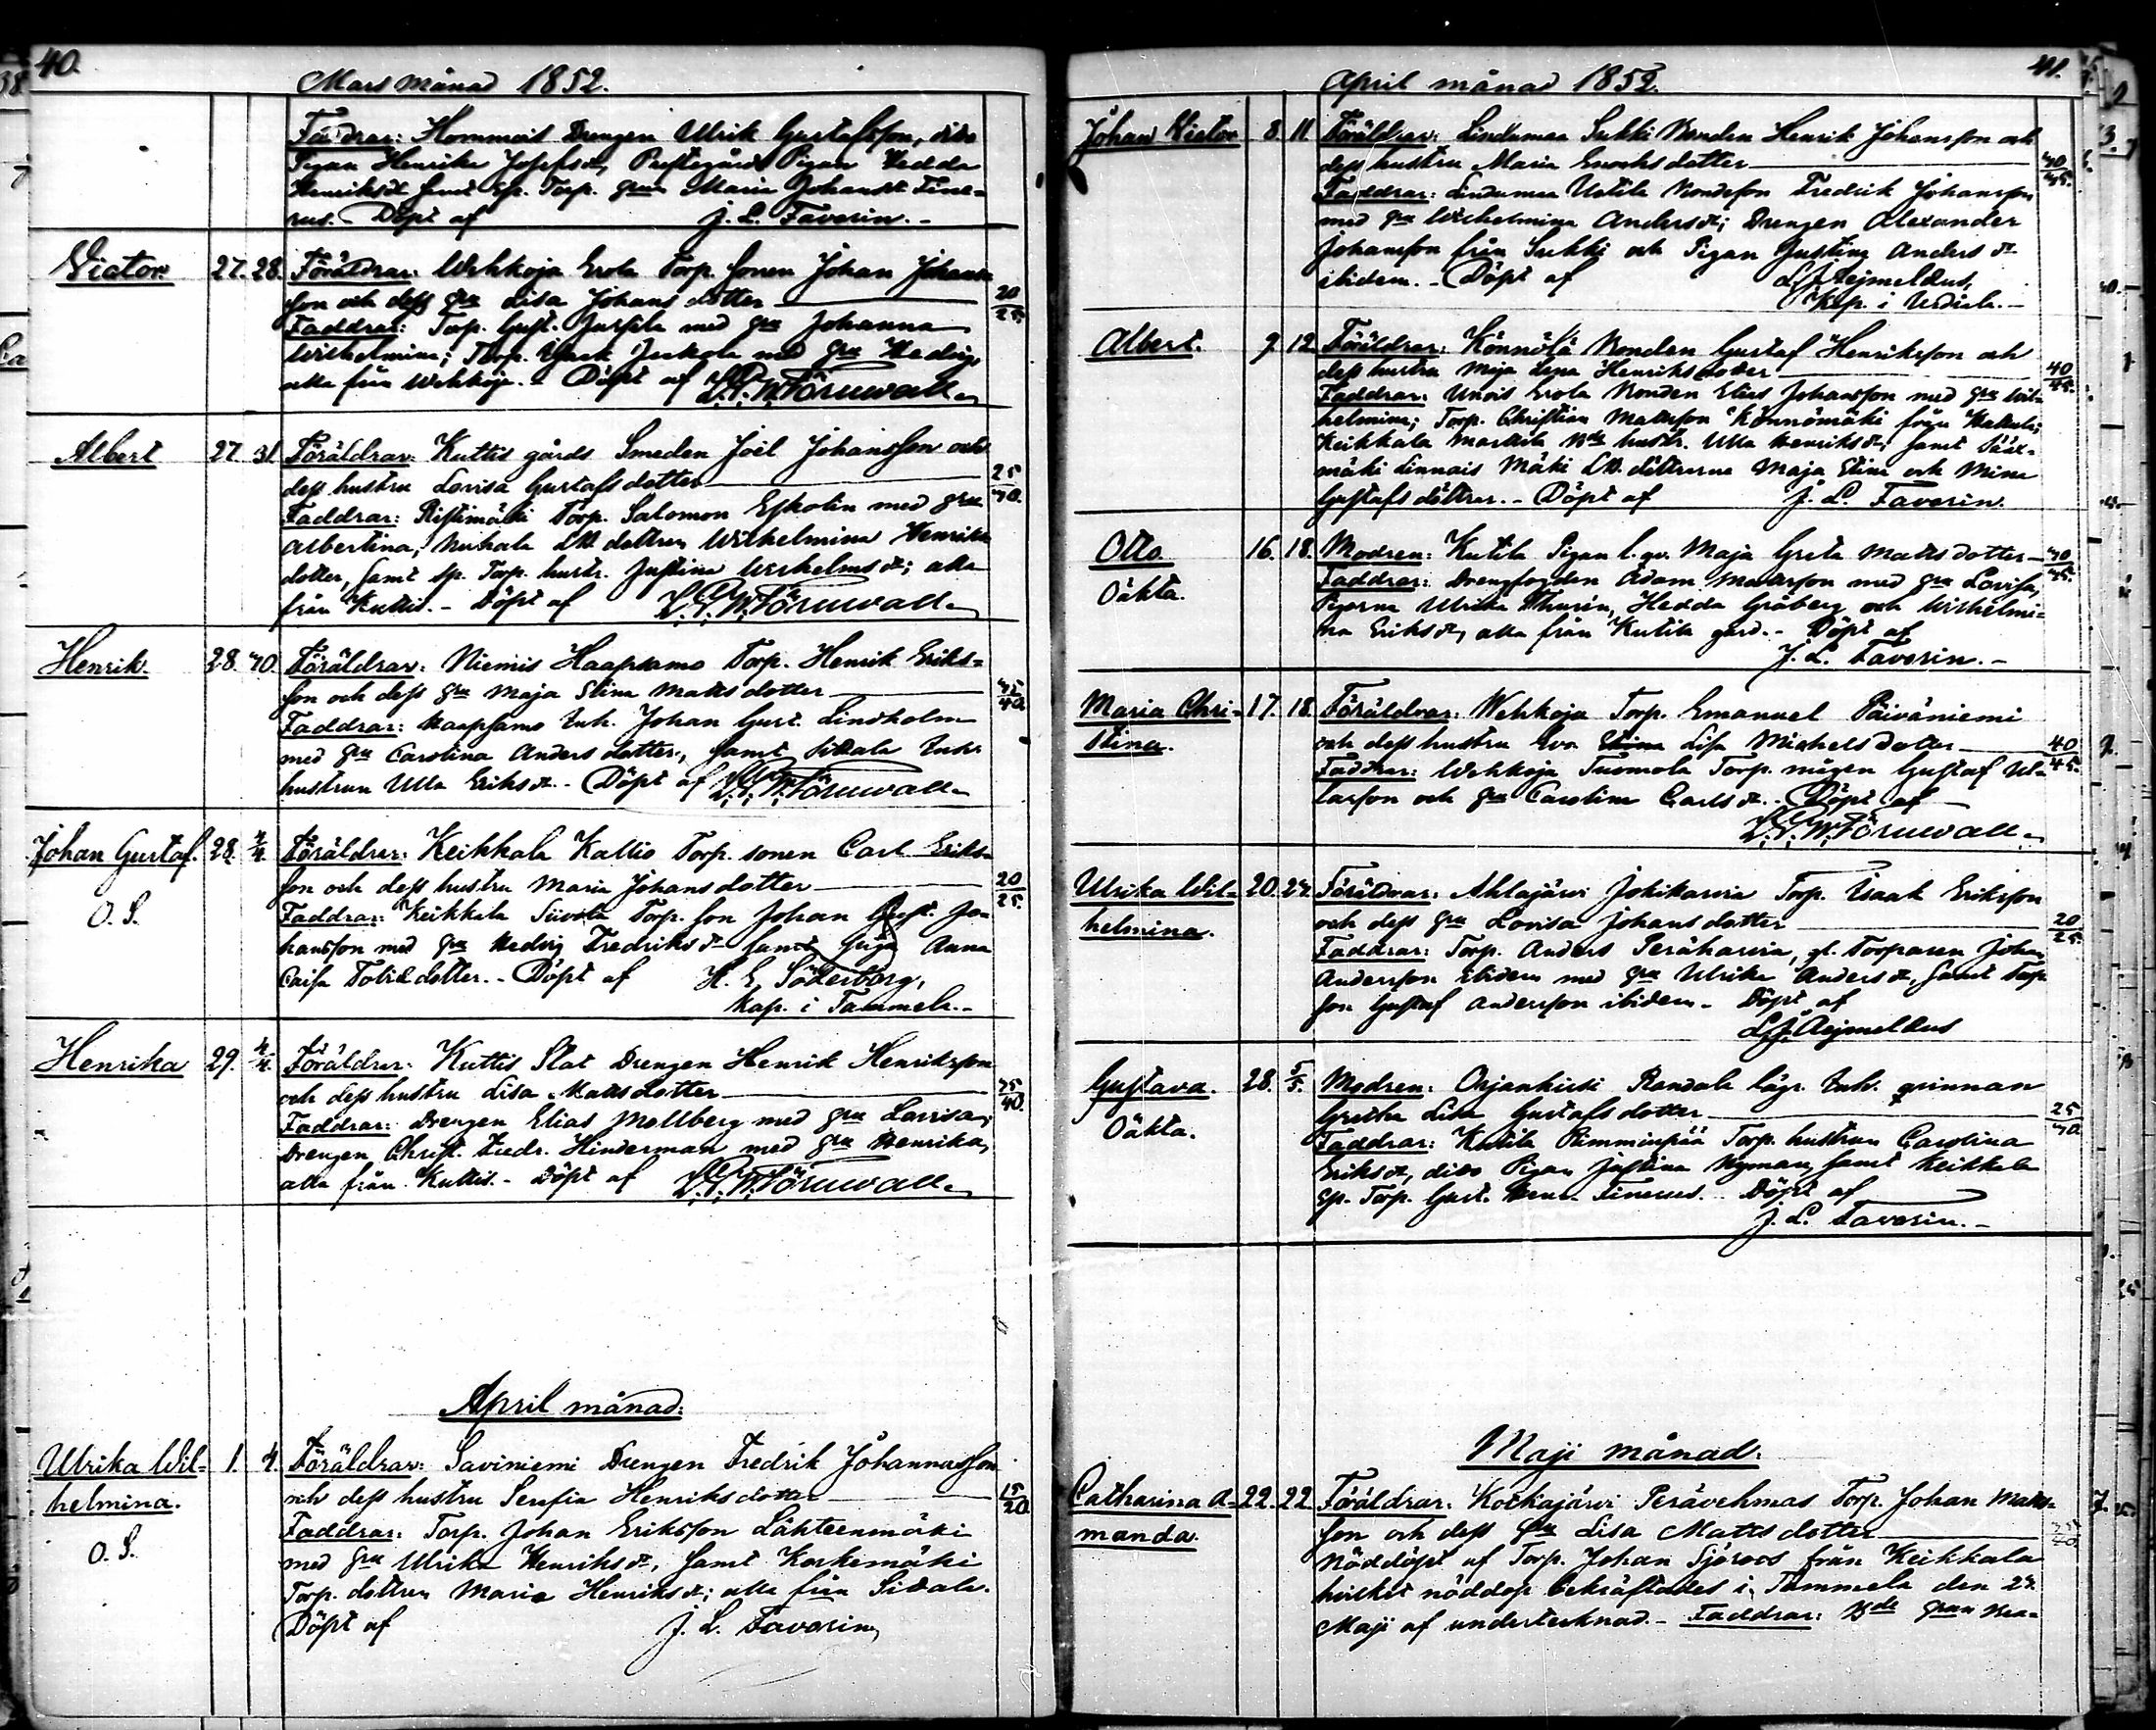 40.
Mars månad 1852.
Faddrar: Hommais Drengen Ulrik Gustafsson, dito
Pigan Henrika Josefsdr, Prestegårds Pigan Hedda
Henriksdr samt Sp. Torp. grun Maria Johansdr Fine-
rus. Döpt af J. L. Taverin.-
Victor. 27. 28. Föräldrar: Wehkoja Erola Torp. sonen Johan Johans-
son och dess hru Lisa Johansdotter 20/25.
Faddrar: Torp. Gust. med hru Johanna
Wilhelmina; Torp. Isaak Juskola med hru Hedvig,
alla från Wehkoja.- Döpt af
Albert 27. 31. Föräldrar: Kuttis gårds Smeden Joël Johansson och
dess hustru Lovisa Gustafsdotter 25/30.
Faddrar: Ristimäki Torp. Salomon Eskolin med hru
Albertina, dottren Wilhelmina Henriks
dotter, samt sp. Torp. hustr. Justina Wilhelmsdr; alla
från Kuttis.- Döpt af
Henrik. 28. 30. Föräldrar: Niemis Haapsamo Torp. Henrik Eriks-
son och dess hru Maja Stina Mattsdotter 35/40.
Faddrar: Haapsamo Inh. Johan Gust. Lindholm
med hru Carolina Andersdotter, samt Sidala Inh.
hustrun Ulla Eriksdr.- Döpt af
Johan Gustaf. 28. 4/4. Föräldrar: Keikkala Kallio Torp. sonen Carl Eriks-
son och dess hustru Maria Johansdotter 20/25.
O. S.
Faddrar: Keikkala Torp. son Johan Gust. Jo-
hansson med hru Hedvig Fredriksdr samt Anna
Caisa dotter.- Döpt af H. E. Söderborg,
Kap. i Tammela.-
Henrika 29. 4/4. Föräldrar: Kuttis Stat Drengen Henrik Henriksson
och dess hustru Lisa Mattsdotter 35/40.
Faddrar: Drengen Elias Mellberg med hru Lovisa;
Drengen Christ. Fredr. Hinderman med hru Henrika,
alla från Kuttis.- Döpt af
April månad.
Ulrika Wil- 1. 4. Föräldrar: Saviniemi Drengen Fredrik Johannesson
helmina. och dess hustru Serafia Henriksdotter 15/20.
O. S.
Faddrar: Torp. Johan Eriksson Lähteenmäki
med hru Ulrika Henriksdr, samt Korkemäki
Torp. dottren Maria Henriksdr; alla från Sidala.
Döpt af J. L. Taverin,
41.
April månad 1852.
Johan Victor 8. 11. Föräldrar: Lindumaa Sukki Bonden Henrik Johansson och
dess hustru Maria Enochsdotter
Faddrar: Lindumaa Uotila Bondeson Fredrik Johansson
med hru Wilhelmina Andersdr; Drengen Alexander
Johansson från Sukki och Pigan Justina Andersdr
ibidem.- Döpt af L. J. Aejmelæus,
Kap. i Urdiala.-
Albert. 9. 12. Föräldrar: Könnölä Bonden Gustaf Henriksson och
dess hustru Maja Lena Henriksdotter 40/45.
Faddrar: Unois Erola Bonden Elias Johansson med hru Wil-
helmina; Torp. Christian Mattsson Könnömäki från
Keikkala Marttila Bde hustr. Ulla Henriksdr; samt Sääx-
mäki Linnais Mäki döttrarna Maja Stina och Mina
Gustafsdöttrar.- Döpt af J. L. Taverin.
Otto 16. 18. Modren: Kutila Pigan l. qv. Maja Greta Mattsdotter
Oäkta. Faddrar: Drengfogden Adam Mattsson med hru Lovisa,
Pigorna Ulrika Thurin, Hedda Gråberg och Wilhelmi-
na Eriksdr, alla från Kutila gård.- Döpt af
J. L. Taverin.-
Maria Chri- 17. 18. Föräldrar: Wehkoja Torp. Emanuel Päiväniemi
stina. och dess hustru Eva Lisa Michelsdotter 40/45.
Faddrar: Wehkoja Tuomola Torp. mågen Gustaf
och hru Carolina Carlsdr.- Döpt af
Ulrika Wil- 20. 22. Föräldrar: Ahlajärvi Jokikarvia Torp. Isaak Eriksson
helmina. och dess hru Lovisa Johansdotter 20/25.
Faddrar: Torp. Anders Peräkarvia, gl. Torparen Johan
Andersson ibidem med hru Ulrika Andersdr, samt Torp.
son Gustaf Andersson ibidem.- Döpt af
L. J. Aejmelæus
Gustava. 28. 5/5. Modren: Orjanhirsi Randala lägr. Inh. qvinnan
Greta Lisa Gustafsdotter 25/30.
Oäkta. Faddrar: Kutila Rimminpää Torp. hustrun Carolina
Eriksdr, dito Pigan Justina Nyman, samt Keikkala
Sp. Torp. Gust. Finerus.- Döpt af
J. L. Taverin.-
Maji månad.
Catharina A- 22. 22. Föräldrar: Kockajärvi Perävehmas Torp. Johan Matts-
manda. son och dess hru Lisa Mattsdotter
Nöddöpt af Torp. Johan Sjöroos från Keikkala
hvilket nöddop bekräftades i Tammela den
Maji af undertecknad.- Faddrar: Bde